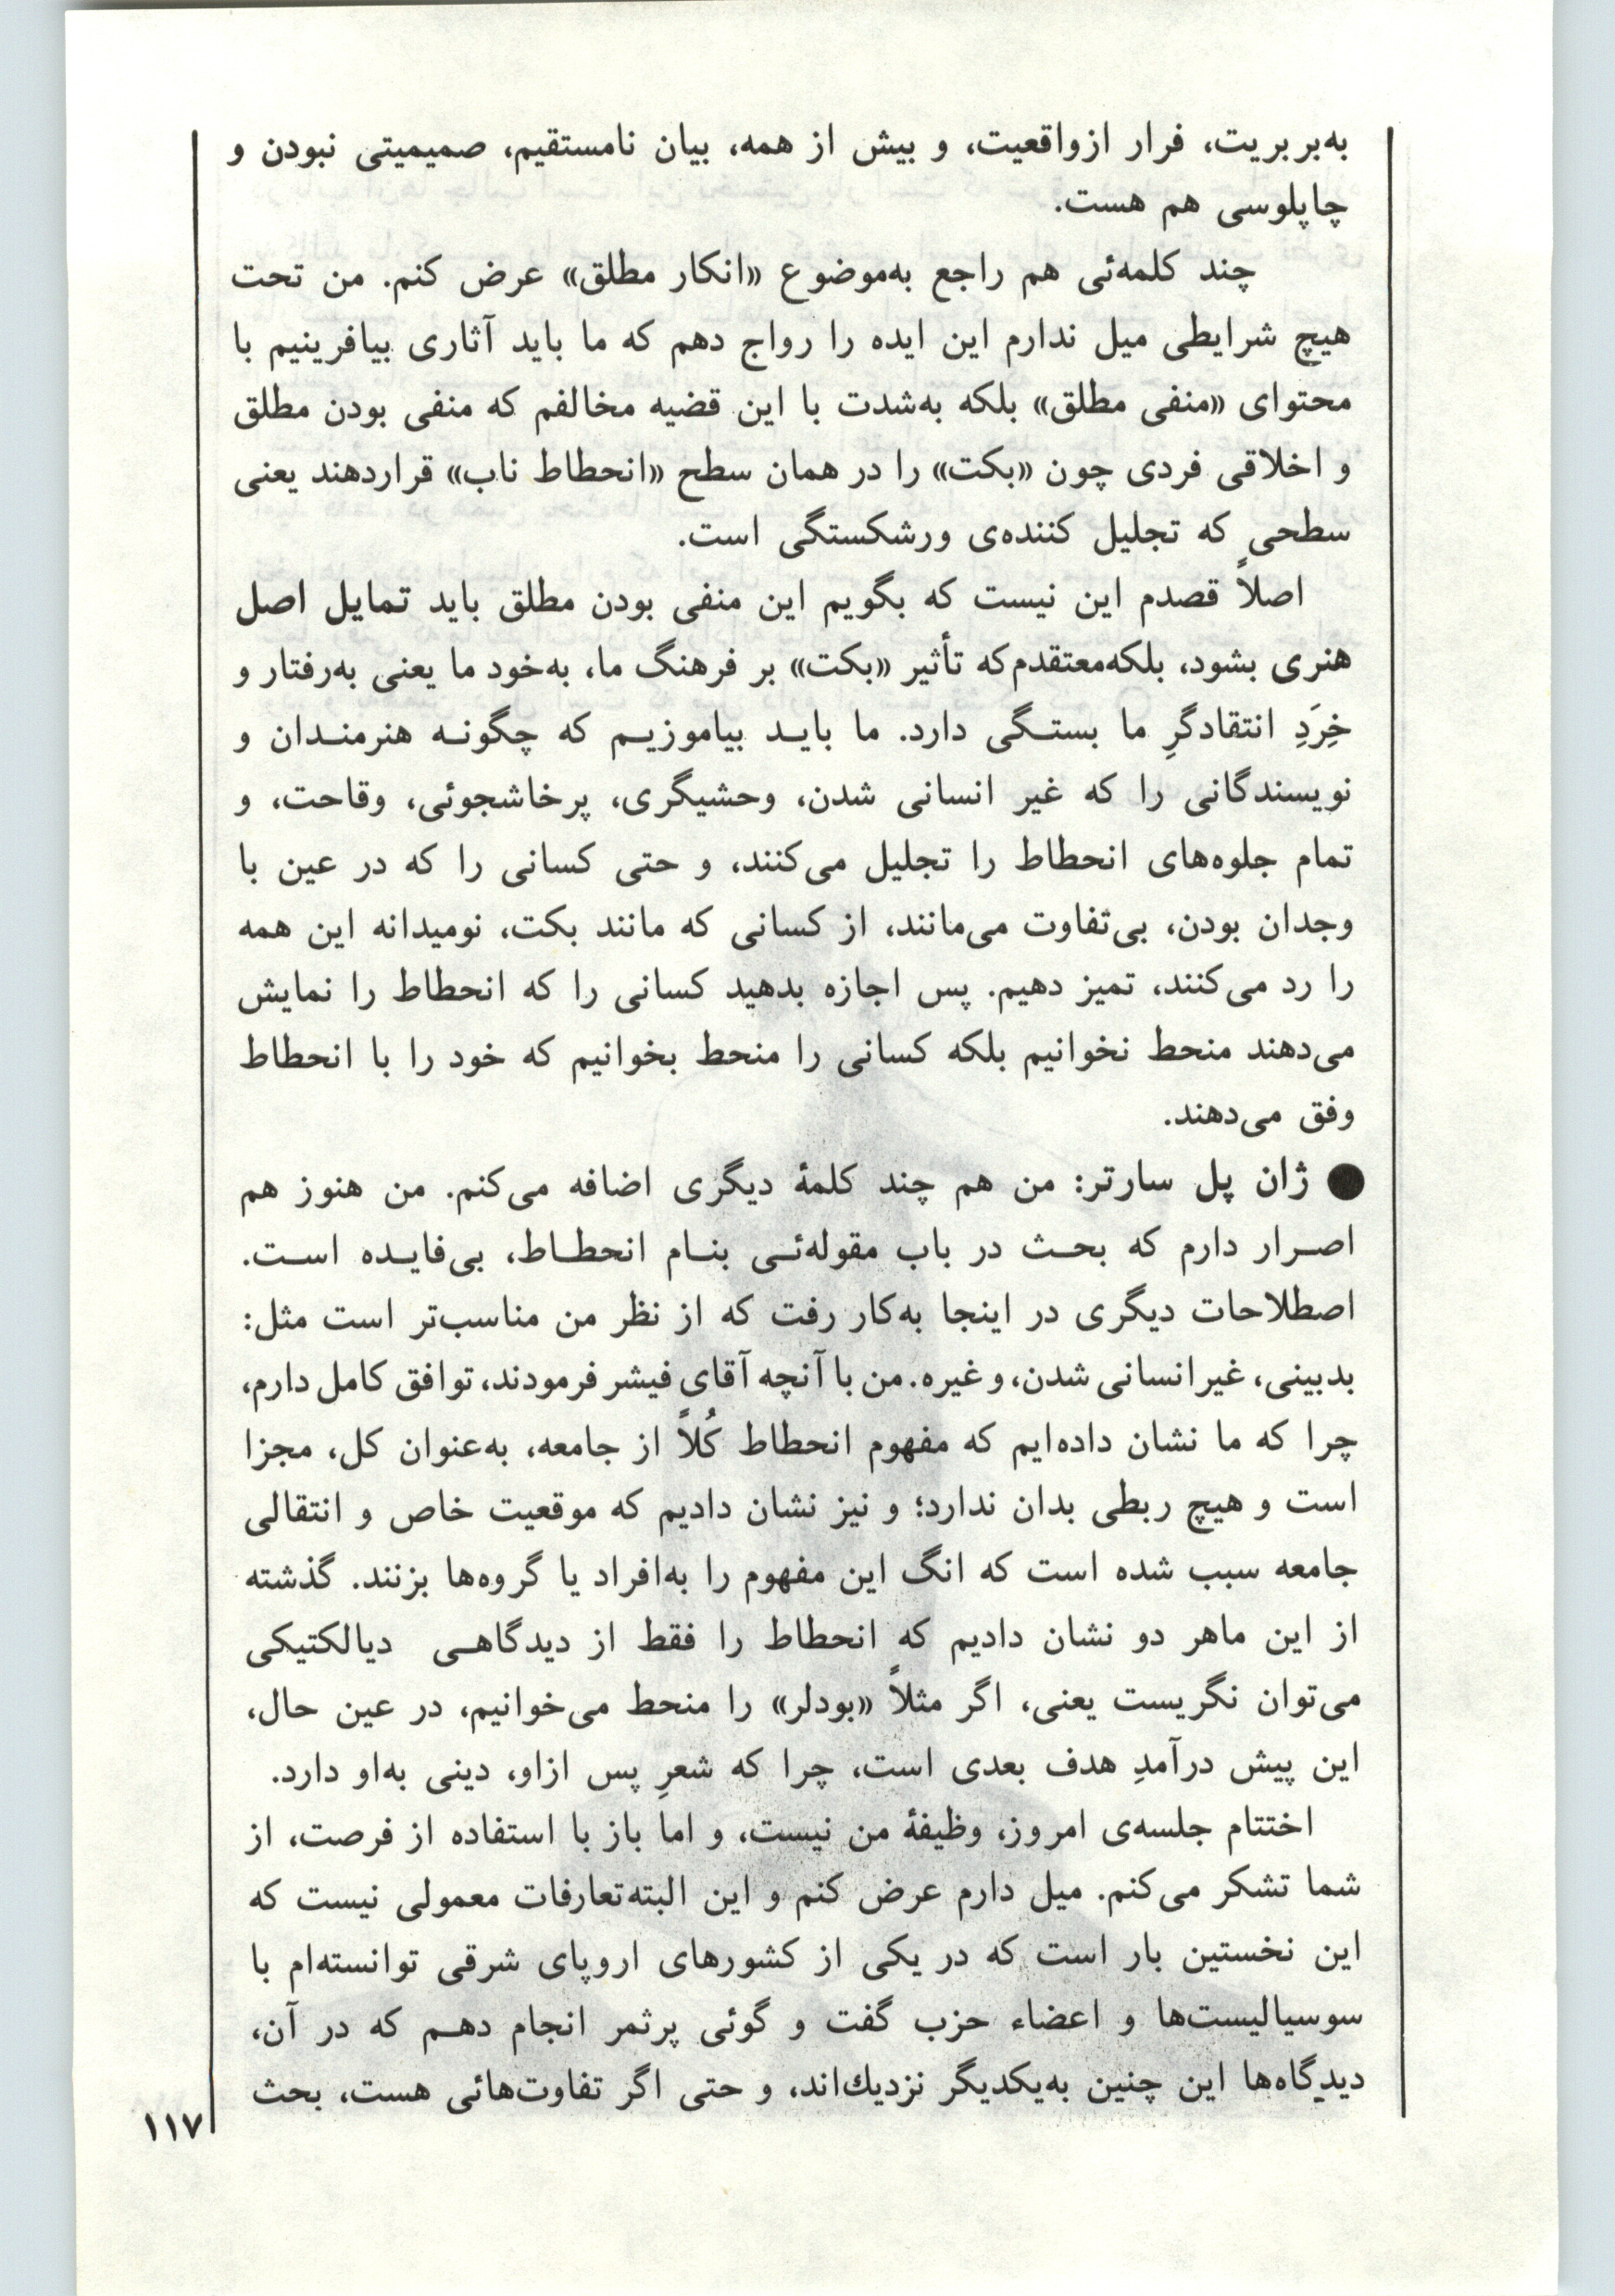 به‌بربریت، فرار ازواقعیت، و بیش از همه، بیان نامستقیم، صمیمیتی نبودن و
چاپلوسی هم هست.
چند کلمه‌ئی هم راجع به‌موضوع «انکار مطلق» عرض کنم. من تحت
هیچ شرایطی میل ندارم این ایده را رواج دهم که ما باید آثاری بیافرینیم با
محتوای «منفی مطلق» بلکه به‌شدت با این قضیه مخالفم که منفی بودن مطلق
و اخلاقی فردی چون «بکت» را در همان سطح «انحطاط ناب» قراردهند یعنی
سطحی که تجلیل کننده‌ی ورشکستگی است.
اصلاً قصدم این نیست که بگویم این منفی بودن مطلق باید تمایل اصل
هنری بشود، بلکه‌معتقدم‌که تأثیر «بکت» بر فرهنگ ما، به‌خود ما یعنی به‌رفتار و
خِرَدِ انتقادگرِ ما بستـگی دارد. ما بایـد بیاموزیـم که چگونـه هنرمنـدان و
نویسندگانی را که غیر انسانی شدن، وحشیگری، پرخاشجوئی، وقاحت، و
تمام جلوه‌های انحطاط را تجلیل می‌کنند، و حتی کسانی را که در عین با
وجدان بودن، بی‌تفاوت می‌مانند، از کسانی که مانند بکت، نومیدانه این همه
را رد می‌کنند، تمیز دهیم. پس اجازه بدهید کسانی را که انحطاط را نمایش
می‌دهند منحط نخوانیم بلکه کسانی را منحط بخوانیم که خود را با انحطاط
وفق می‌دهند.
● ژان پل سارتر: من هم چند کلمهٔ دیگری اضافه می‌کنم. من هنوز هم
اصـرار دارم که بحـث در باب مقوله‌ئـی بنـام انحطـاط، بی‌فایـده اسـت.
اصطلاحات دیگری در اینجا به‌کار رفت که از نظر من مناسب‌تر است مثل:
بدبینی، غیرانسانی شدن، و غیره. من با آنچه آقای فیشر فرمودند، توافق کامل دارم،
چرا که ما نشان داده‌ایم که مفهوم انحطاط کُلاً از جامعه، به‌عنوان کل، مجزا
است و هیچ ربطی بدان ندارد؛ و نیز نشان دادیم که موقعیت خاص و انتقالی
جامعه سبب شده است که انگ این مفهوم را به‌افراد یا گروه‌ها بزنند. گذشته
از این ماهر دو نشان دادیم که انحطاط را فقط از دیدگاهـی دیالکتیکی
می‌توان نگریست یعنی، اگر مثلاً «بودلر» را منحط می‌خوانیم، در عین حال،
این پیش درآمدِ هدف بعدی است، چرا که شعرِ پس ازاو، دینی به‌او دارد.
اختتام جلسه‌ی امروز، وظیفهٔ من نیست، و اما باز با استفاده از فرصت، از
شما تشکر می‌کنم. میل دارم عرض کنم و این البته‌تعارفات معمولی نیست که
این نخستین بار است که در یکی از کشورهای اروپای شرقی توانسته‌ام با
سوسیالیست‌ها و اعضاء حزب گفت و گوئی پرثمر انجام دهـم که در آن،
دیدگاه‌ها این چنین به‌یکدیگر نزدیك‌اند، و حتی اگر تفاوت‌هائی هست، بحث
۱۱۷